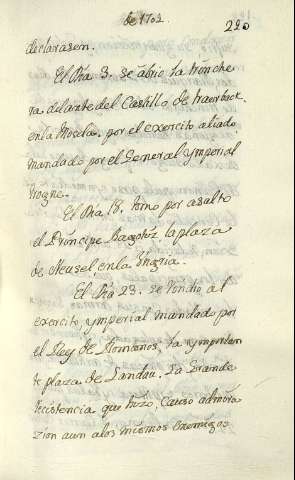 de 1702. 220
declarasen.
El Dia 3. se abrio la trinche
ra delante del Castillo de Traerback.
en la Mosela. por el exercito aliado
mandado por el General ymperial
El Dia 18. tomo por asalto
el Principe Ragotzi la plaza
de Neasel, en la Ungria.
El Dia 23. se rindio al
exercito, ymperial mandado por
el Rey de Romanos, la ymportan
te plaza de Landau. La Grande
resistencia que hizo, Causo admira
zion aun a los mismos Enemigos